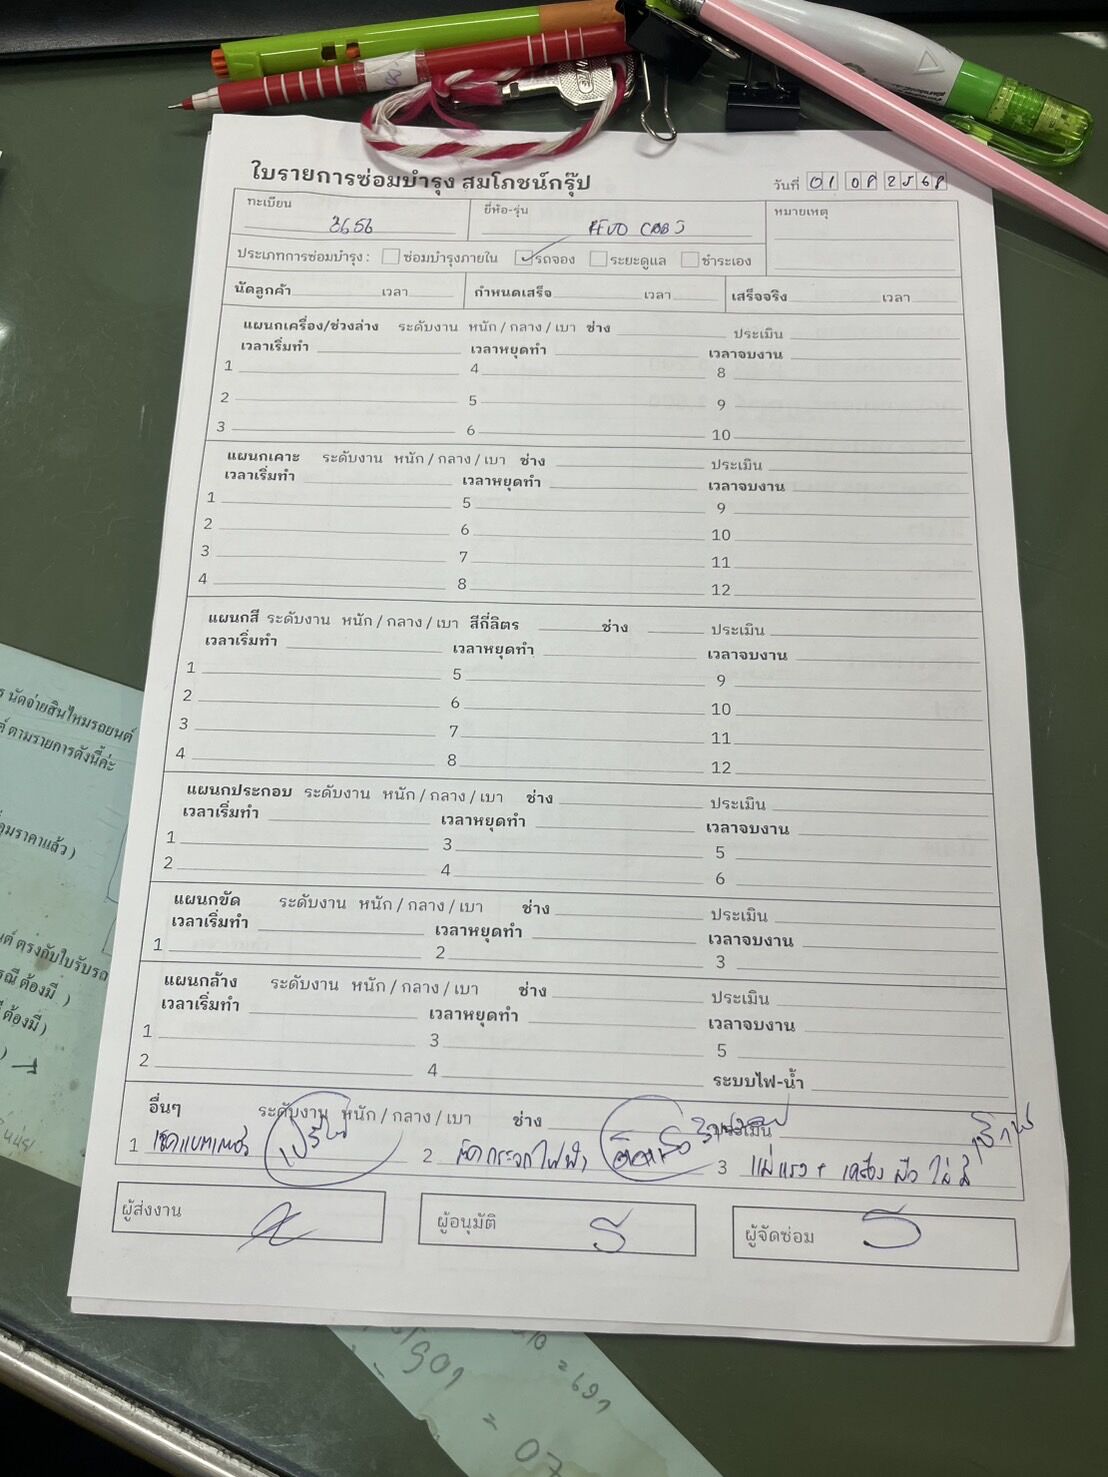 ใบรายการซ่อมบำรุง สมโภชน์กรุ๊ป
วันที่ 01 08 2568
ทะเบียน 3656 ยี่ห้อ-รุ่น REVO CAB หมายเหตุ
ประเภทการซ่อมบำรุง : ซ่อมบำรุงภายใน รถจอง ระยะดูแล ชำระเอง
นัดลูกค้า เวลา กำหนดเสร็จ เวลา เสร็จจริง เวลา
แผนกเครื่อง/ช่วงล่าง ระดับงาน หนัก / กลาง / เบา ช่าง ประเมิน
เวลาเริ่มทำ เวลาหยุดทำ เวลาจบงาน
1 4 8
2 5 9
3 6 10
แผนกเคาะ ระดับงาน หนัก / กลาง / เบา ช่าง ประเมิน
เวลาเริ่มทำ เวลาหยุดทำ เวลาจบงาน
1 5 9
2 6 10
3 7 11
4 8 12
แผนกสี ระดับงาน หนัก / กลาง / เบา สีกี่ลิตร ช่าง ประเมิน
เวลาเริ่มทำ เวลาหยุดทำ เวลาจบงาน
1 5 9
2 6 10
3 7 11
4 8 12
แผนกประกอบ ระดับงาน หนัก / กลาง / เบา ช่าง ประเมิน
เวลาเริ่มทำ เวลาหยุดทำ เวลาจบงาน
1 3 5
2 4 6
แผนกขัด ระดับงาน หนัก / กลาง / เบา ช่าง ประเมิน
เวลาเริ่มทำ เวลาหยุดทำ เวลาจบงาน
1 2 3
แผนกล้าง ระดับงาน หนัก / กลาง / เบา ช่าง ประเมิน
เวลาเริ่มทำ เวลาหยุดทำ เวลาจบงาน
1 3 5
2 4 ระบบไฟ-น้ำ
อื่นๆ ระดับงาน หนัก / กลาง / เบา ช่าง ประเมิน
1 เช็คแบตเตอรี่ 2 เช็คกระจกไฟฟ้า 3 แม่แรง + เครื่องมือ ใส่
ผู้ส่งงาน ผู้อนุมัติ ผู้จัดซ่อม
นัดจ่ายสินไหมรถยนต์
ตามรายการดังนี้ค่ะ
คุมราคาแล้ว )
ตรงกับใบรับรถ
ต้องมี )
ต้องมี )
= 691